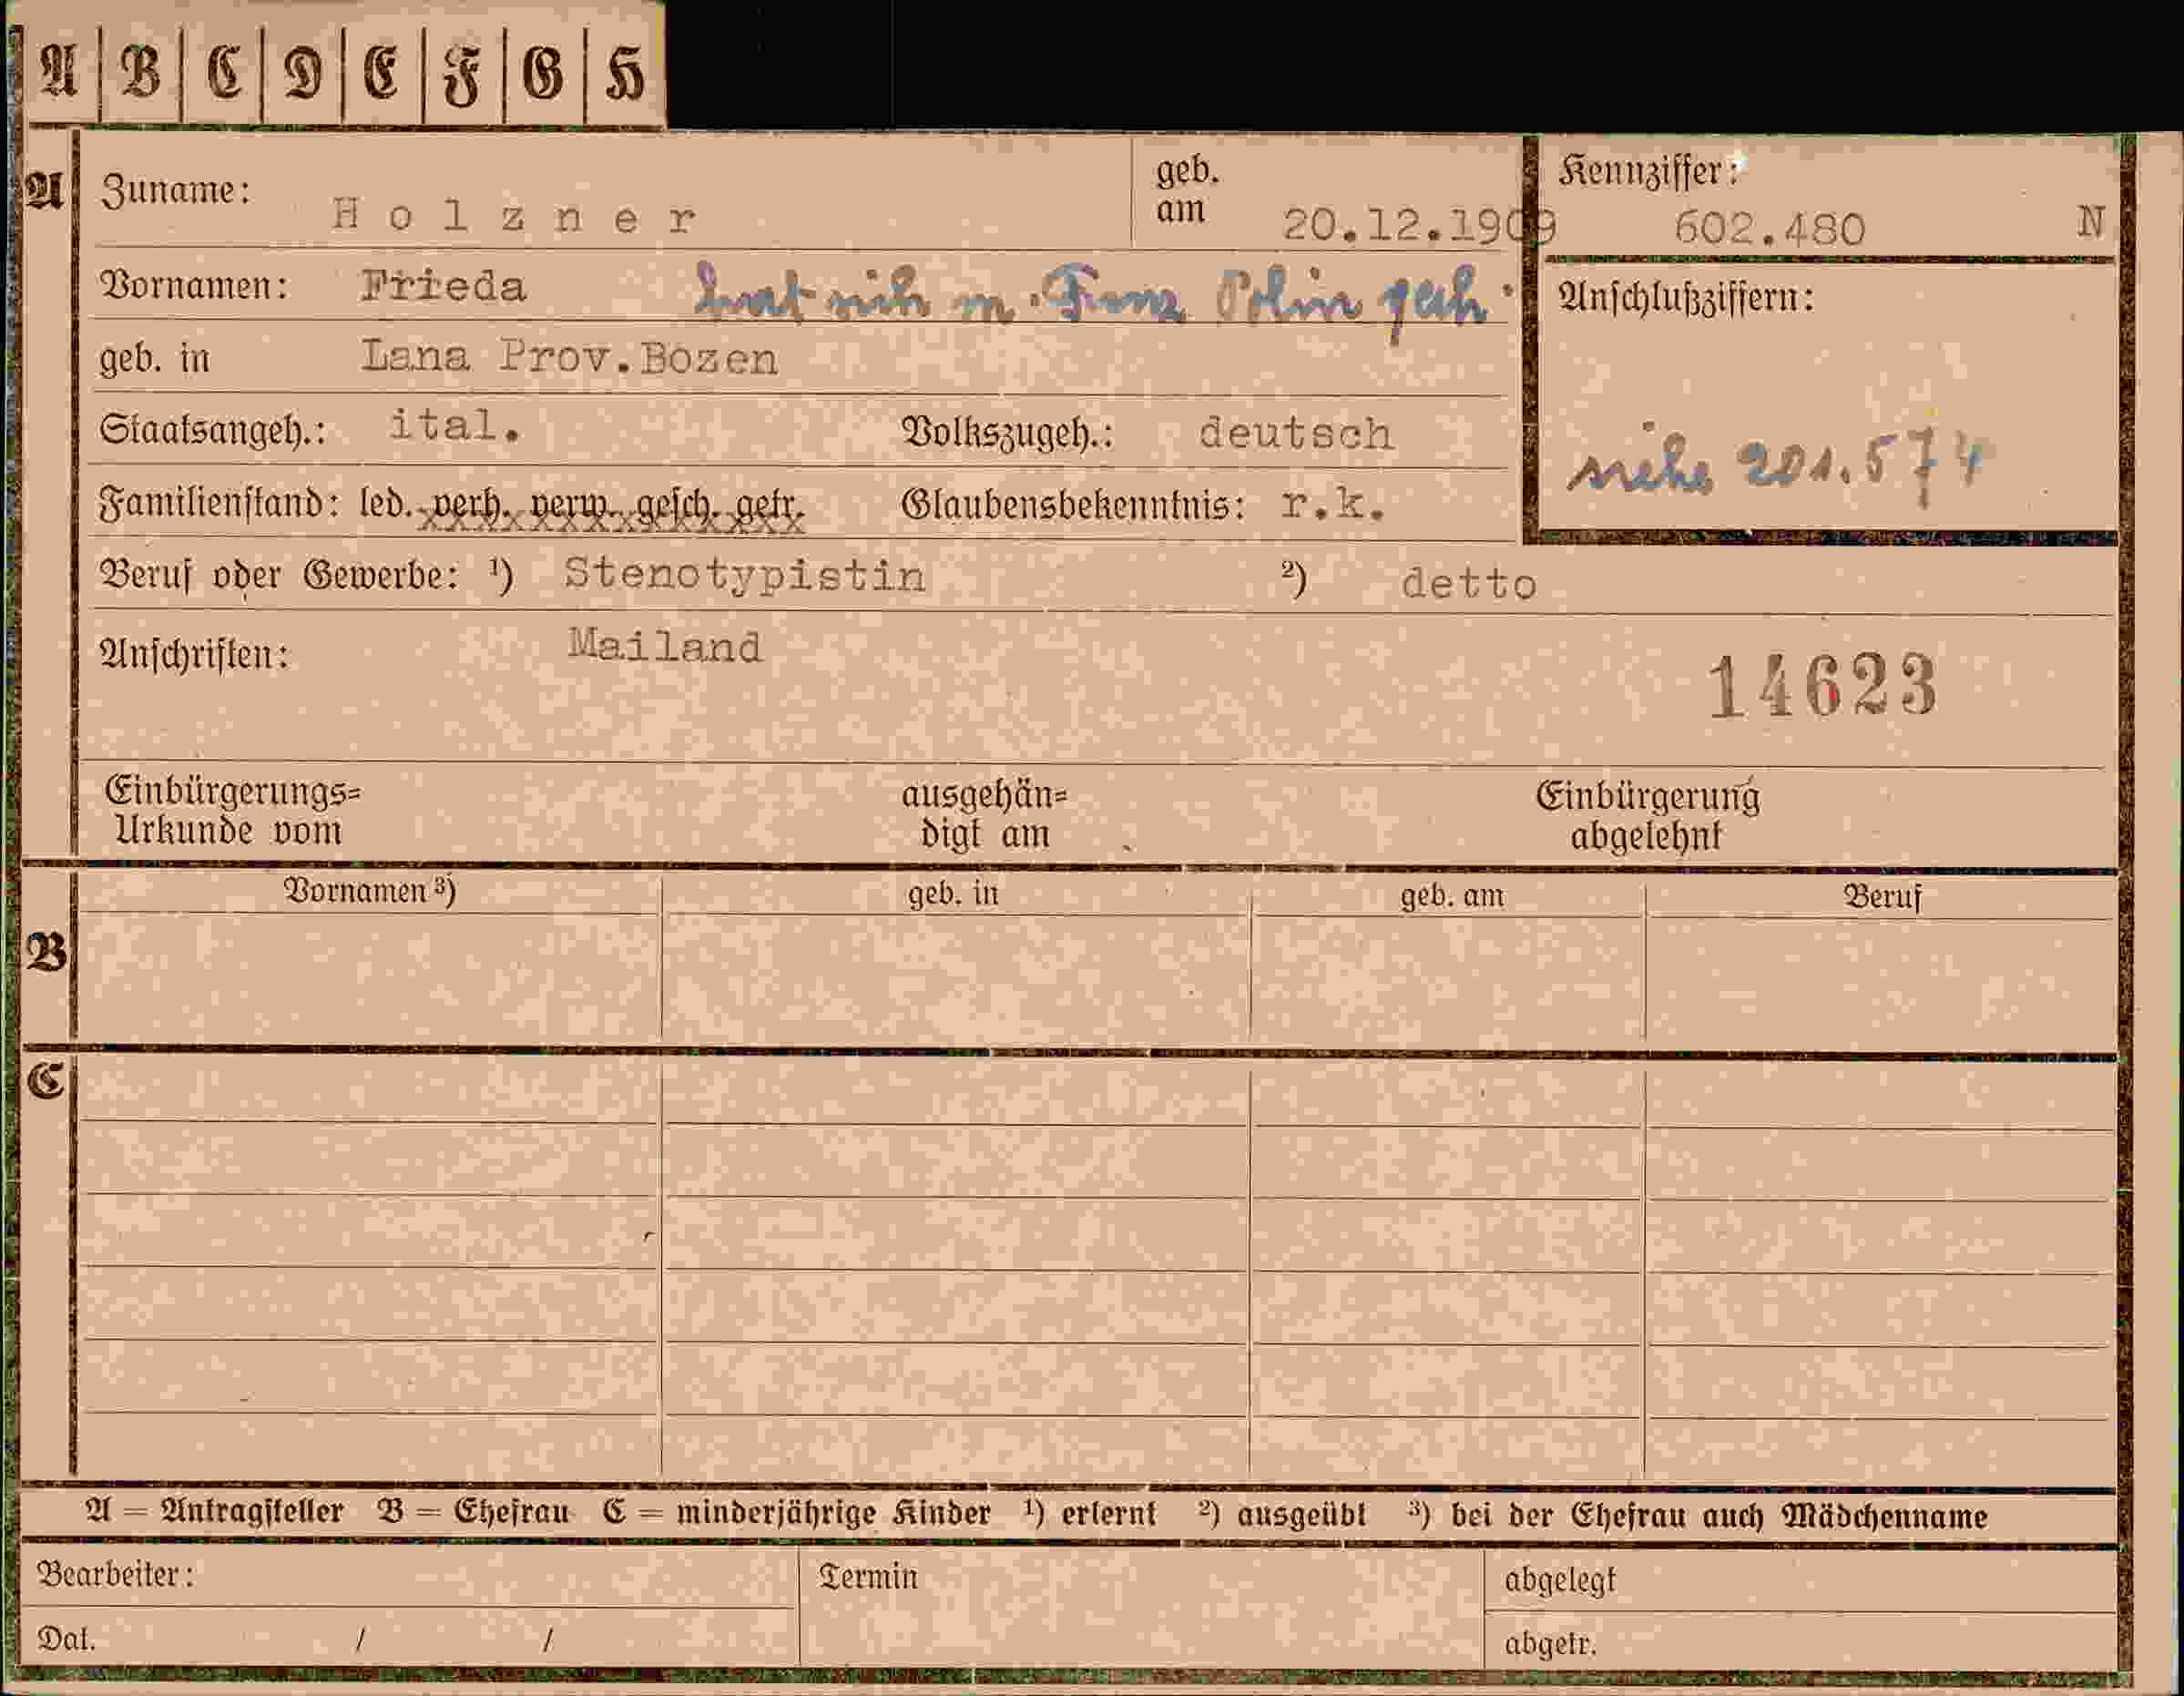 A B C D E F G H
A Zuname: Holzner geb. am 20.12.1909 Kennziffer: 602.480 N
Vornamen: Frieda hat sich m. Franz Polin geeh. Anschlußziffern:
geb. in Lana Prov.Bozen
Staatsangeh.: ital. Volkszugeh.: deutsch siehe 201.574
Familienstand: led. verh. verw. gesch. getr. Glaubensbekenntnis: r.k.
Beruf oder Gewerbe: ¹) Stenotypistin ²) detto
Anschriften: Mailand
14623
Einbürgerungs= Urkunde vom ausgehän= digt am Einbürgerung abgelehnt
Vornamen ³) geb. in geb. am Beruf
B
C
A = Antragsteller B = Ehefrau C = minderjährige Kinder ¹) erlernt ²) ausgeübt ³) bei der Ehefrau auch Mädchenname
Bearbeiter: Termin abgelegt
Dat. / / abgetr.